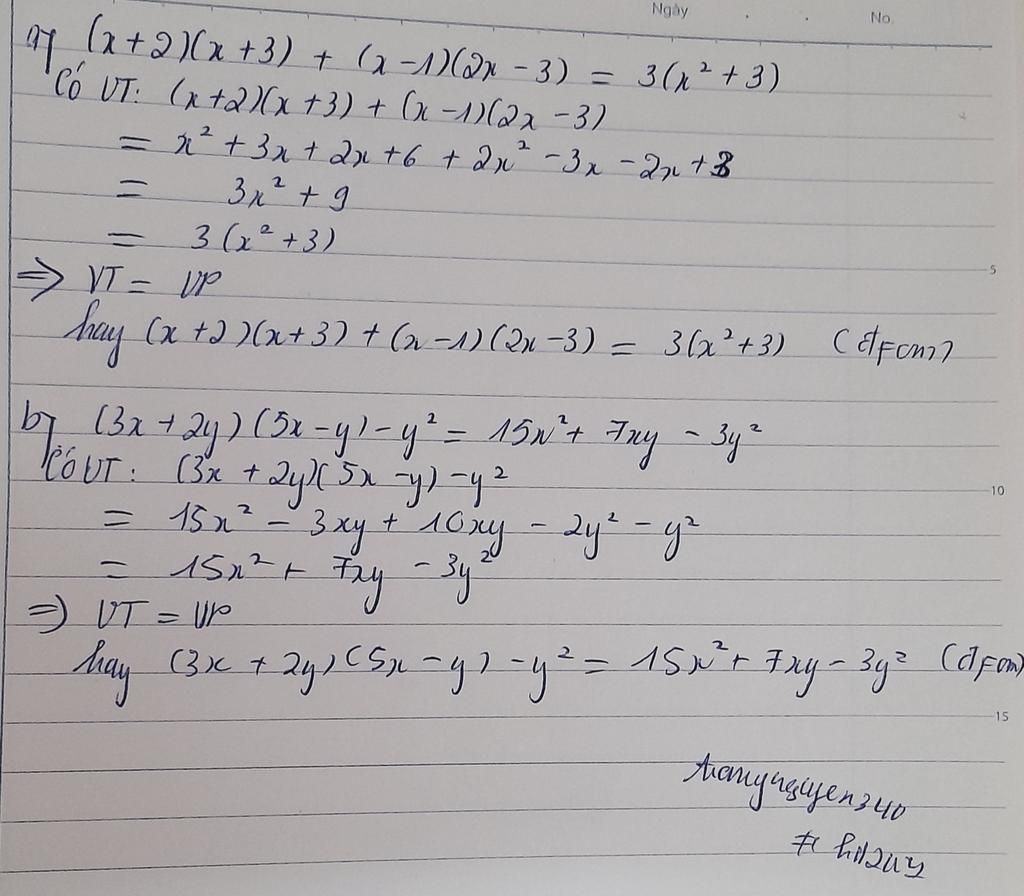 Ngày No.
a, (x+2)(x+3) + (x-1)(2x-3) = 3(x²+3)
Có VT: (x+2)(x+3) + (x-1)(2x-3)
= x² + 3x + 2x + 6 + 2x² - 3x - 2x + 3
= 3x² + 9
= 3(x²+3)
5
⇒ VT = VP
hay (x+2)(x+3) + (x-1)(2x-3) = 3(x²+3) (đpcm)
b, (3x+2y)(5x-y) - y² = 15x² + 7xy - 3y²
Có VT: (3x+2y)(5x-y) - y²
10
= 15x² - 3xy + 10xy - 2y² - y²
= 15x² + 7xy - 3y²
⇒ VT = VP
hay (3x+2y)(5x-y) - y² = 15x² + 7xy - 3y² (đpcm)
15